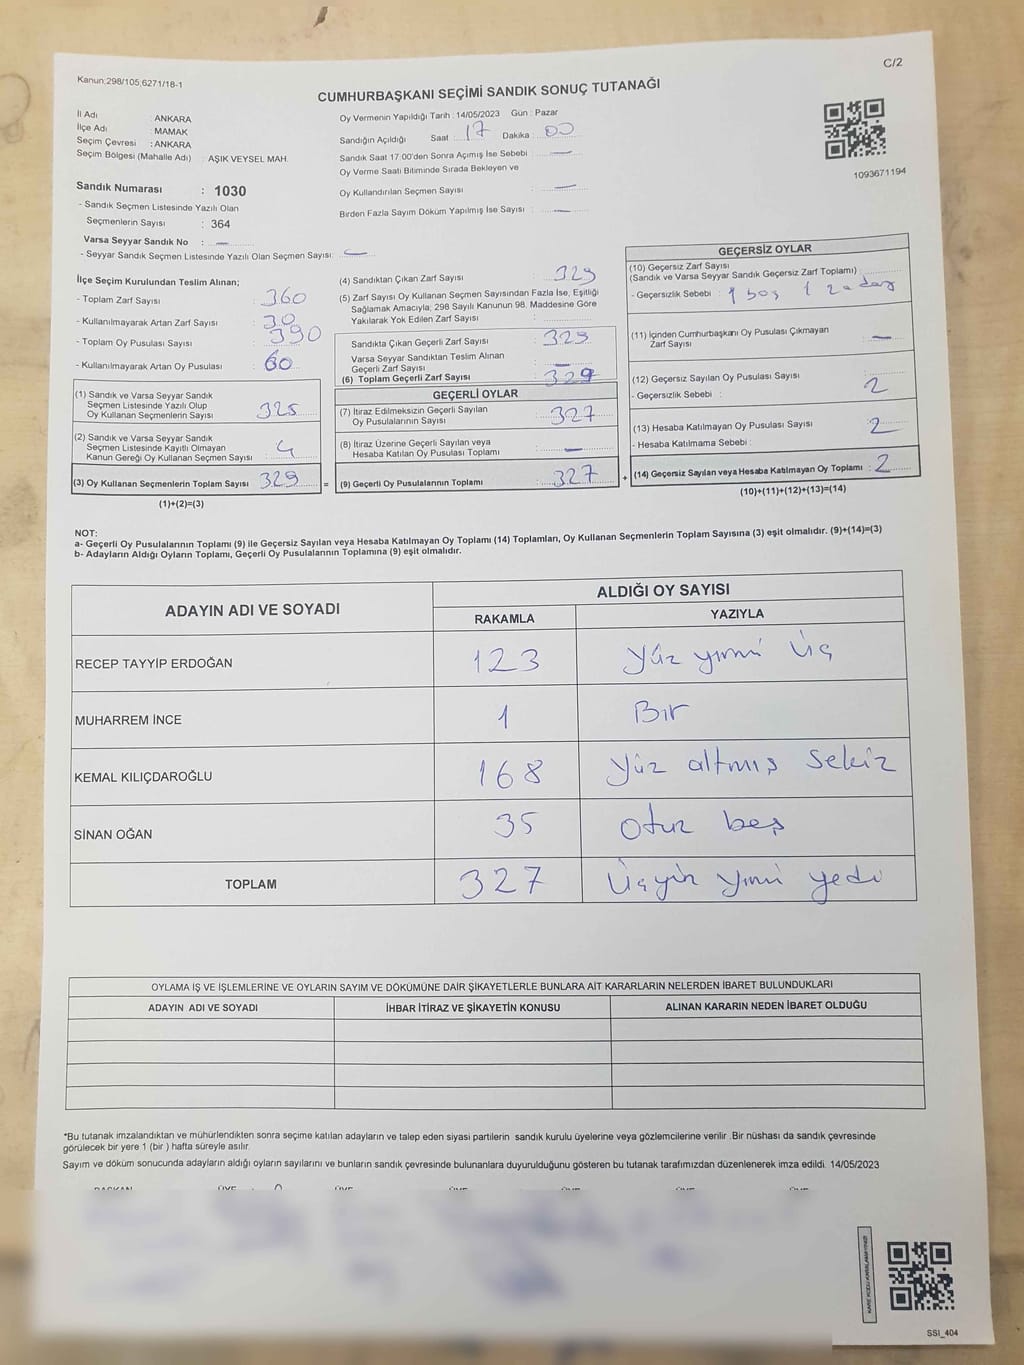 Kanun;298/105;6271/18-1
C/2
CUMHURBAŞKANI SEÇİMİ SANDIK SONUÇ TUTANAĞI
İl Adı : ANKARA
İlçe Adı : MAMAK
Seçim Çevresi : ANKARA
Seçim Bölgesi (Mahalle Adı) : AŞIK VEYSEL MAH.
Sandık Numarası : 1030
- Sandık Seçmen Listesinde Yazılı Olan
Seçmenlerin Sayısı : 364
Varsa Seyyar Sandık No : —
- Seyyar Sandık Seçmen Listesinde Yazılı Olan Seçmen Sayısı: —
Oy Vermenin Yapıldığı Tarih : 14/05/2023 Gün : Pazar
Sandığın Açıldığı Saat : 17 Dakika : 00
Sandık Saat 17:00'den Sonra Açımış İse Sebebi : —
Oy Verme Saati Bitiminde Sırada Bekleyen ve
Oy Kullandırılan Seçmen Sayısı : —
Birden Fazla Sayım Döküm Yapılmış İse Sayısı : —
1093671194
İlçe Seçim Kurulundan Teslim Alınan;
- Toplam Zarf Sayısı : 360
- Kullanılmayarak Artan Zarf Sayısı : 30
- Toplam Oy Pusulası Sayısı : 390
- Kullanılmayarak Artan Oy Pusulası : 60
(1) Sandık ve Varsa Seyyar Sandık
Seçmen Listesinde Yazılı Olup
Oy Kullanan Seçmenlerin Sayısı : 325
(2) Sandık ve Varsa Seyyar Sandık
Seçmen Listesinde Kayıtlı Olmayan
Kanun Gereği Oy Kullanan Seçmen Sayısı : 4
(3) Oy Kullanan Seçmenlerin Toplam Sayısı : 329
(1)+(2)=(3)
=
(4) Sandıktan Çıkan Zarf Sayısı : 329
(5) Zarf Sayısı Oy Kullanan Seçmen Sayısından Fazla İse, Eşitliği
Sağlamak Amacıyla; 298 Sayılı Kanunun 98. Maddesine Göre
Yakılarak Yok Edilen Zarf Sayısı :
Sandıkta Çıkan Geçerli Zarf Sayısı : 329
Varsa Seyyar Sandıktan Teslim Alınan
Geçerli Zarf Sayısı : —
(6) Toplam Geçerli Zarf Sayısı : 329
GEÇERLİ OYLAR
(7) İtiraz Edilmeksizin Geçerli Sayılan
Oy Pusulalarının Sayısı : 327
(8) İtiraz Üzerine Geçerli Sayılan veya
Hesaba Katılan Oy Pusulası Toplamı : —
(9) Geçerli Oy Pusulalarının Toplamı : 327
+
GEÇERSİZ OYLAR
(10) Geçersiz Zarf Sayısı
(Sandık ve Varsa Seyyar Sandık Geçersiz Zarf Toplamı) :
- Geçersizlik Sebebi : 1 boş 1
(11) İçinden Cumhurbaşkanı Oy Pusulası Çıkmayan
Zarf Sayısı : —
(12) Geçersiz Sayılan Oy Pusulası Sayısı : 2
- Geçersizlik Sebebi :
(13) Hesaba Katılmayan Oy Pusulası Sayısı : 2
- Hesaba Katılmama Sebebi :
(14) Geçersiz Sayılan veya Hesaba Katılmayan Oy Toplamı : 2
(10)+(11)+(12)+(13)=(14)
NOT:
a- Geçerli Oy Pusulalarının Toplamı (9) ile Geçersiz Sayılan veya Hesaba Katılmayan Oy Toplamı (14) Toplamları, Oy Kullanan Seçmenlerin Toplam Sayısına (3) eşit olmalıdır. (9)+(14)=(3)
b- Adayların Aldığı Oyların Toplamı, Geçerli Oy Pusulalarının Toplamına (9) eşit olmalıdır.
ADAYIN ADI VE SOYADI
ALDIĞI OY SAYISI
RAKAMLA YAZIYLA
RECEP TAYYİP ERDOĞAN 123 Yüz yirmi Üç
MUHARREM İNCE 1 Bir
KEMAL KILIÇDAROĞLU 168 Yüz altmış Sekiz
SİNAN OĞAN 35 Otuz beş
TOPLAM 327 Üçyüz yirmi yedi
OYLAMA İŞ VE İŞLEMLERİNE VE OYLARIN SAYIM VE DÖKÜMÜNE DAİR ŞİKAYETLERLE BUNLARA AİT KARARLARIN NELERDEN İBARET BULUNDUKLARI
ADAYIN ADI VE SOYADI İHBAR İTİRAZ VE ŞİKAYETİN KONUSU ALINAN KARARIN NEDEN İBARET OLDUĞU
*Bu tutanak imzalandıktan ve mühürlendikten sonra seçime katılan adayların ve talep eden siyasi partilerin sandık kurulu üyelerine veya gözlemcilerine verilir .Bir nüshası da sandık çevresinde
görülecek bir yere 1 (bir ) hafta süreyle asılır.
Sayım ve döküm sonucunda adayların aldığı oyların sayılarını ve bunların sandık çevresinde bulunanlara duyurulduğunu gösteren bu tutanak tarafımızdan düzenlenerek imza edildi. 14/05/2023
SSI_404